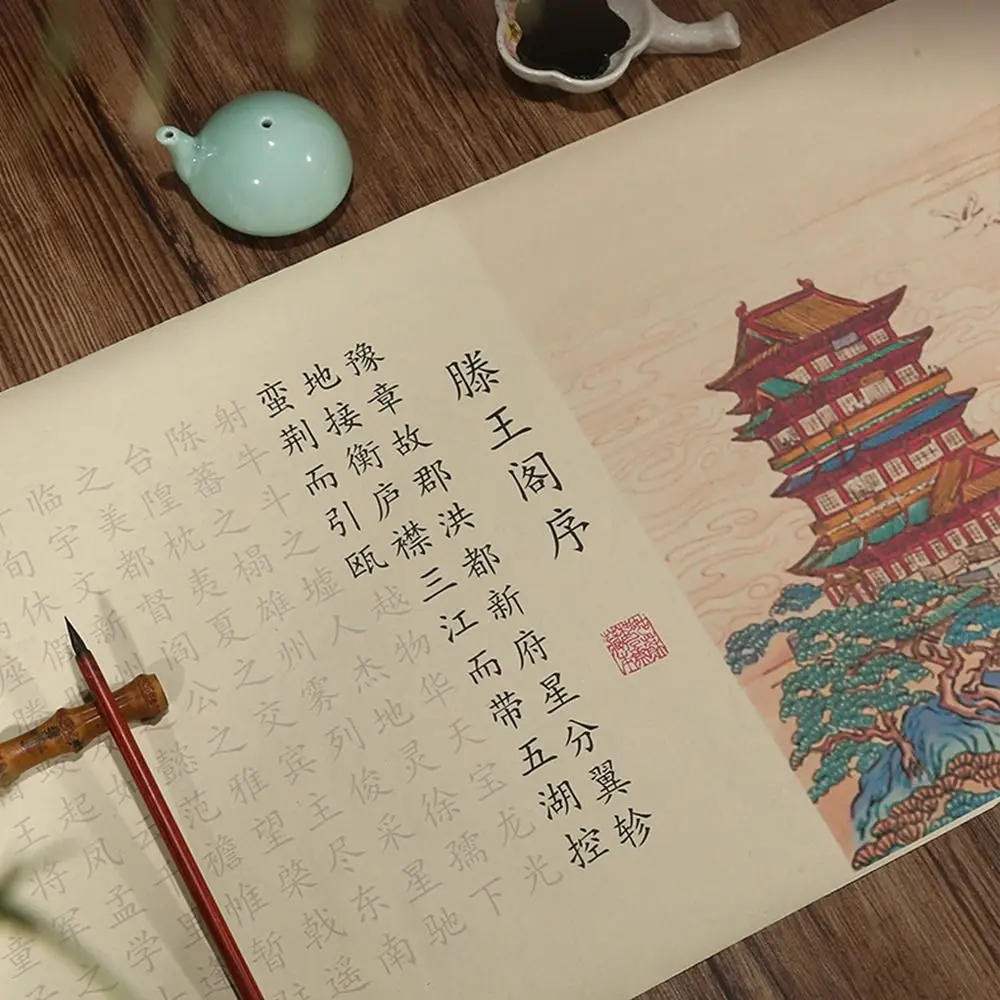 滕王阁序
豫章故郡洪都新府星分翼轸
地接衡庐襟三江而带五湖控
蛮荆而引瓯越物华天宝龙光
射牛斗之墟人杰地灵徐孺下
陈蕃之榻雄州雾列俊采星驰
台隍枕夷夏之交宾主尽东南
之美都督阎公之雅望棨戟遥
临宇文新州之懿范襜帷暂驻
旬休假如云里逢
座腾蛟起凤孟学士
王将军之
童